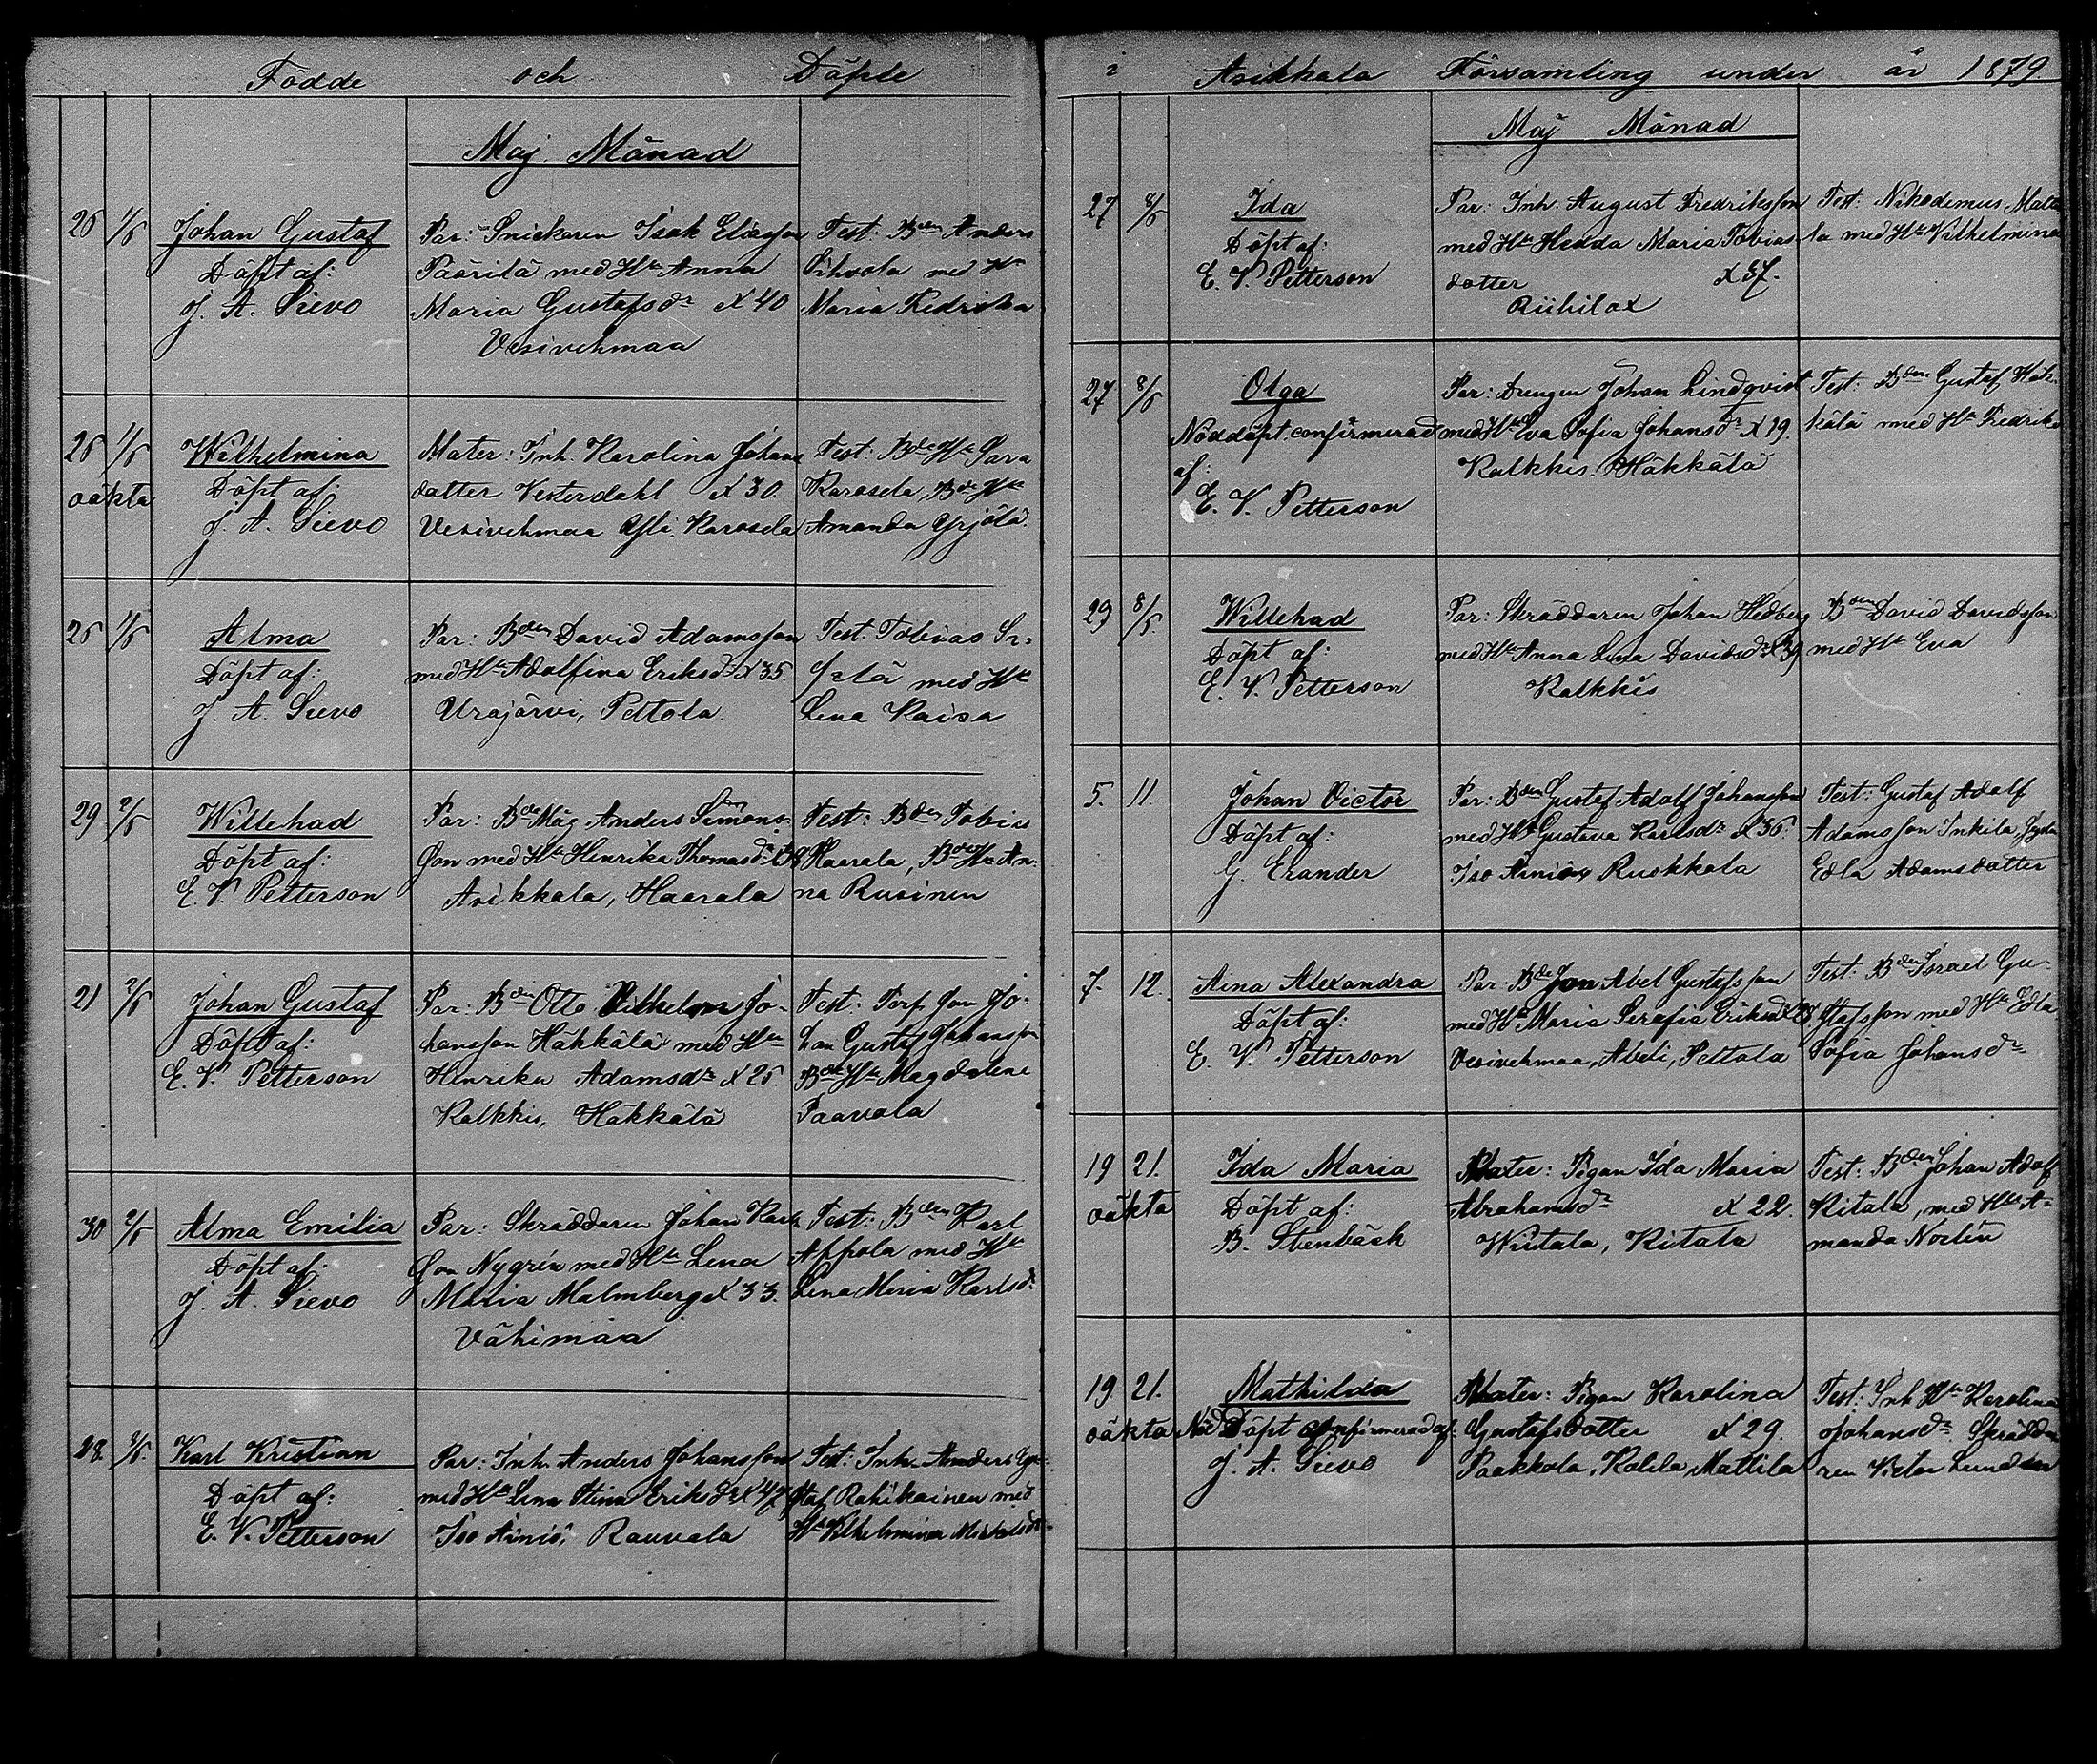 Födde och Döpte
Maj Månad
26 1/5 Johan Gustaf
Döpt af:
J. A. Sievo
Par: Snickaren Isak Eliasson
Päärilä med Hu Anna
Maria Gustafsdr x 40
Vesivehmaa
Test: Bden Anders
Sihvola med Hu
Maria Fredrika
26 1/5 Wilhelmina
oäkta Döpt af:
J. A. Sievo
Mater: Inh. Karolina Johans
datter Vesterdahl x 30.
Vesivehmaa Yli Karosela
Test: Bde Hu Sara
Karosela, Bde Hu
Amanda Yrjölä.
25 1/5 Alma
Döpt af:
J. A. Sievo
Par: Bden David Adamsson
med Hu Adolfina Eriksdr x 35.
Urajärvi, Peltola.
Test: Tobias
med Hu
Lena Kaisa
29 2/5 Willehad
Döpt af:
E. V. Petterson
Par: Bde Måg Anders Simons-
son med Hu Henrika Thomasdr
Asikkala, Haarala
Test: Bden Tobias
Haarala, Bde Hu An-
na Rusinen
21 2/5 Johan Gustaf
Döpt af:
E. V. Petterson
Par: Bden Otto Vilhelm Jo-
hansson Häkkälä med Hu
Henrika Adamsdr x 25.
Kalkkis, Häkkälä
Test: Torp. son Jo-
han Gustaf Johansson
Bde Hu Magdalena
Paavola
30 2/5 Alma Emilia
Döpt af:
J. A. Sievo
Par: Skräddaren Johan Karls
son Nygrén med Hu Lena
Maria Malmberg x 33.
Vähimaa
Test: Bden Karl
Appola med Hu
Lena Maria Karlsdr
28 Karl Kristian
Döpt af:
E. V. Petterson
Par: Inh. Anders Johansson
med Hu Lena Stina Eriksdr x 47
Iso Äiniö, Rauvala
Test: Inh. Anders Gu-
staf Rahikainen med
Hu Vilhelmina
i Asikkala Församling under år 1879
Maj Månad
27 8/5 Ida
Döpt af:
E. V. Petterson
Par: Inh. August Fredriksson
med Hu Hedda Maria Tobias
dotter x 37.
Riihilax
Test: Nikodemus Matti
la med Hu Vilhelmina
27 8/5 Olga
Nöddöpt. confirmerad
af:
E. V. Petterson
Par: Drengen Johan Lindqvist
med Hu Eva Sofia Johansdr x 29.
Kalkkis. Häkkälä
Test: Bden Gustaf Häk-
kälä med Hu Fredrika
29 8/5. Willehad
Döpt af:
E. V. Petterson
Par: Skräddaren Johan Hedberg
med Hu Anna Lena Davidsdr x 39
Kalkkis
Bden David Davidsson
med Hu Eva
5. 11. Johan Victor
Döpt af:
G. Erander
Par: Bden Gustaf Adolf Johansson
med Hu Gustava Karlsdr x 36.
Iso Äiniö, Ruokkola
Test: Gustaf Adolf
Adamsson Inkila,
Edla Adamsdotter
7. 12. Aina Alexandra
Döpt af:
E. V. Petterson
Par: Bde Son Abel Gustafsson
med Hu Maria Serafia Eriksdr
Vesivehmaa, Abeli, Peltola
Test: Bden Israel Gu-
stafsson med Hu Edla
Sofia Johansdr
19 21. Ida Maria
oäkta Döpt af:
B. Stenbäck
Mater: Pigan Ida Maria
Abrahamsdr x 22.
Kiitala
Test: Bden Johan Adolf
Kitala, med Hu A-
manda Norlén
19 21. Mathilda
oäkta Nöddöpt confirmerad af:
J. A. Sievo
Mater: Pigan Karolina
Gustafsdotter x 29.
Paakkola, Kalela Mattila
Test: Inh Hu Karolina
Johansdr Skrädda
ren Victor